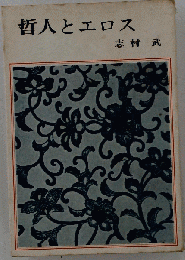 哲人とエロス
志村 武